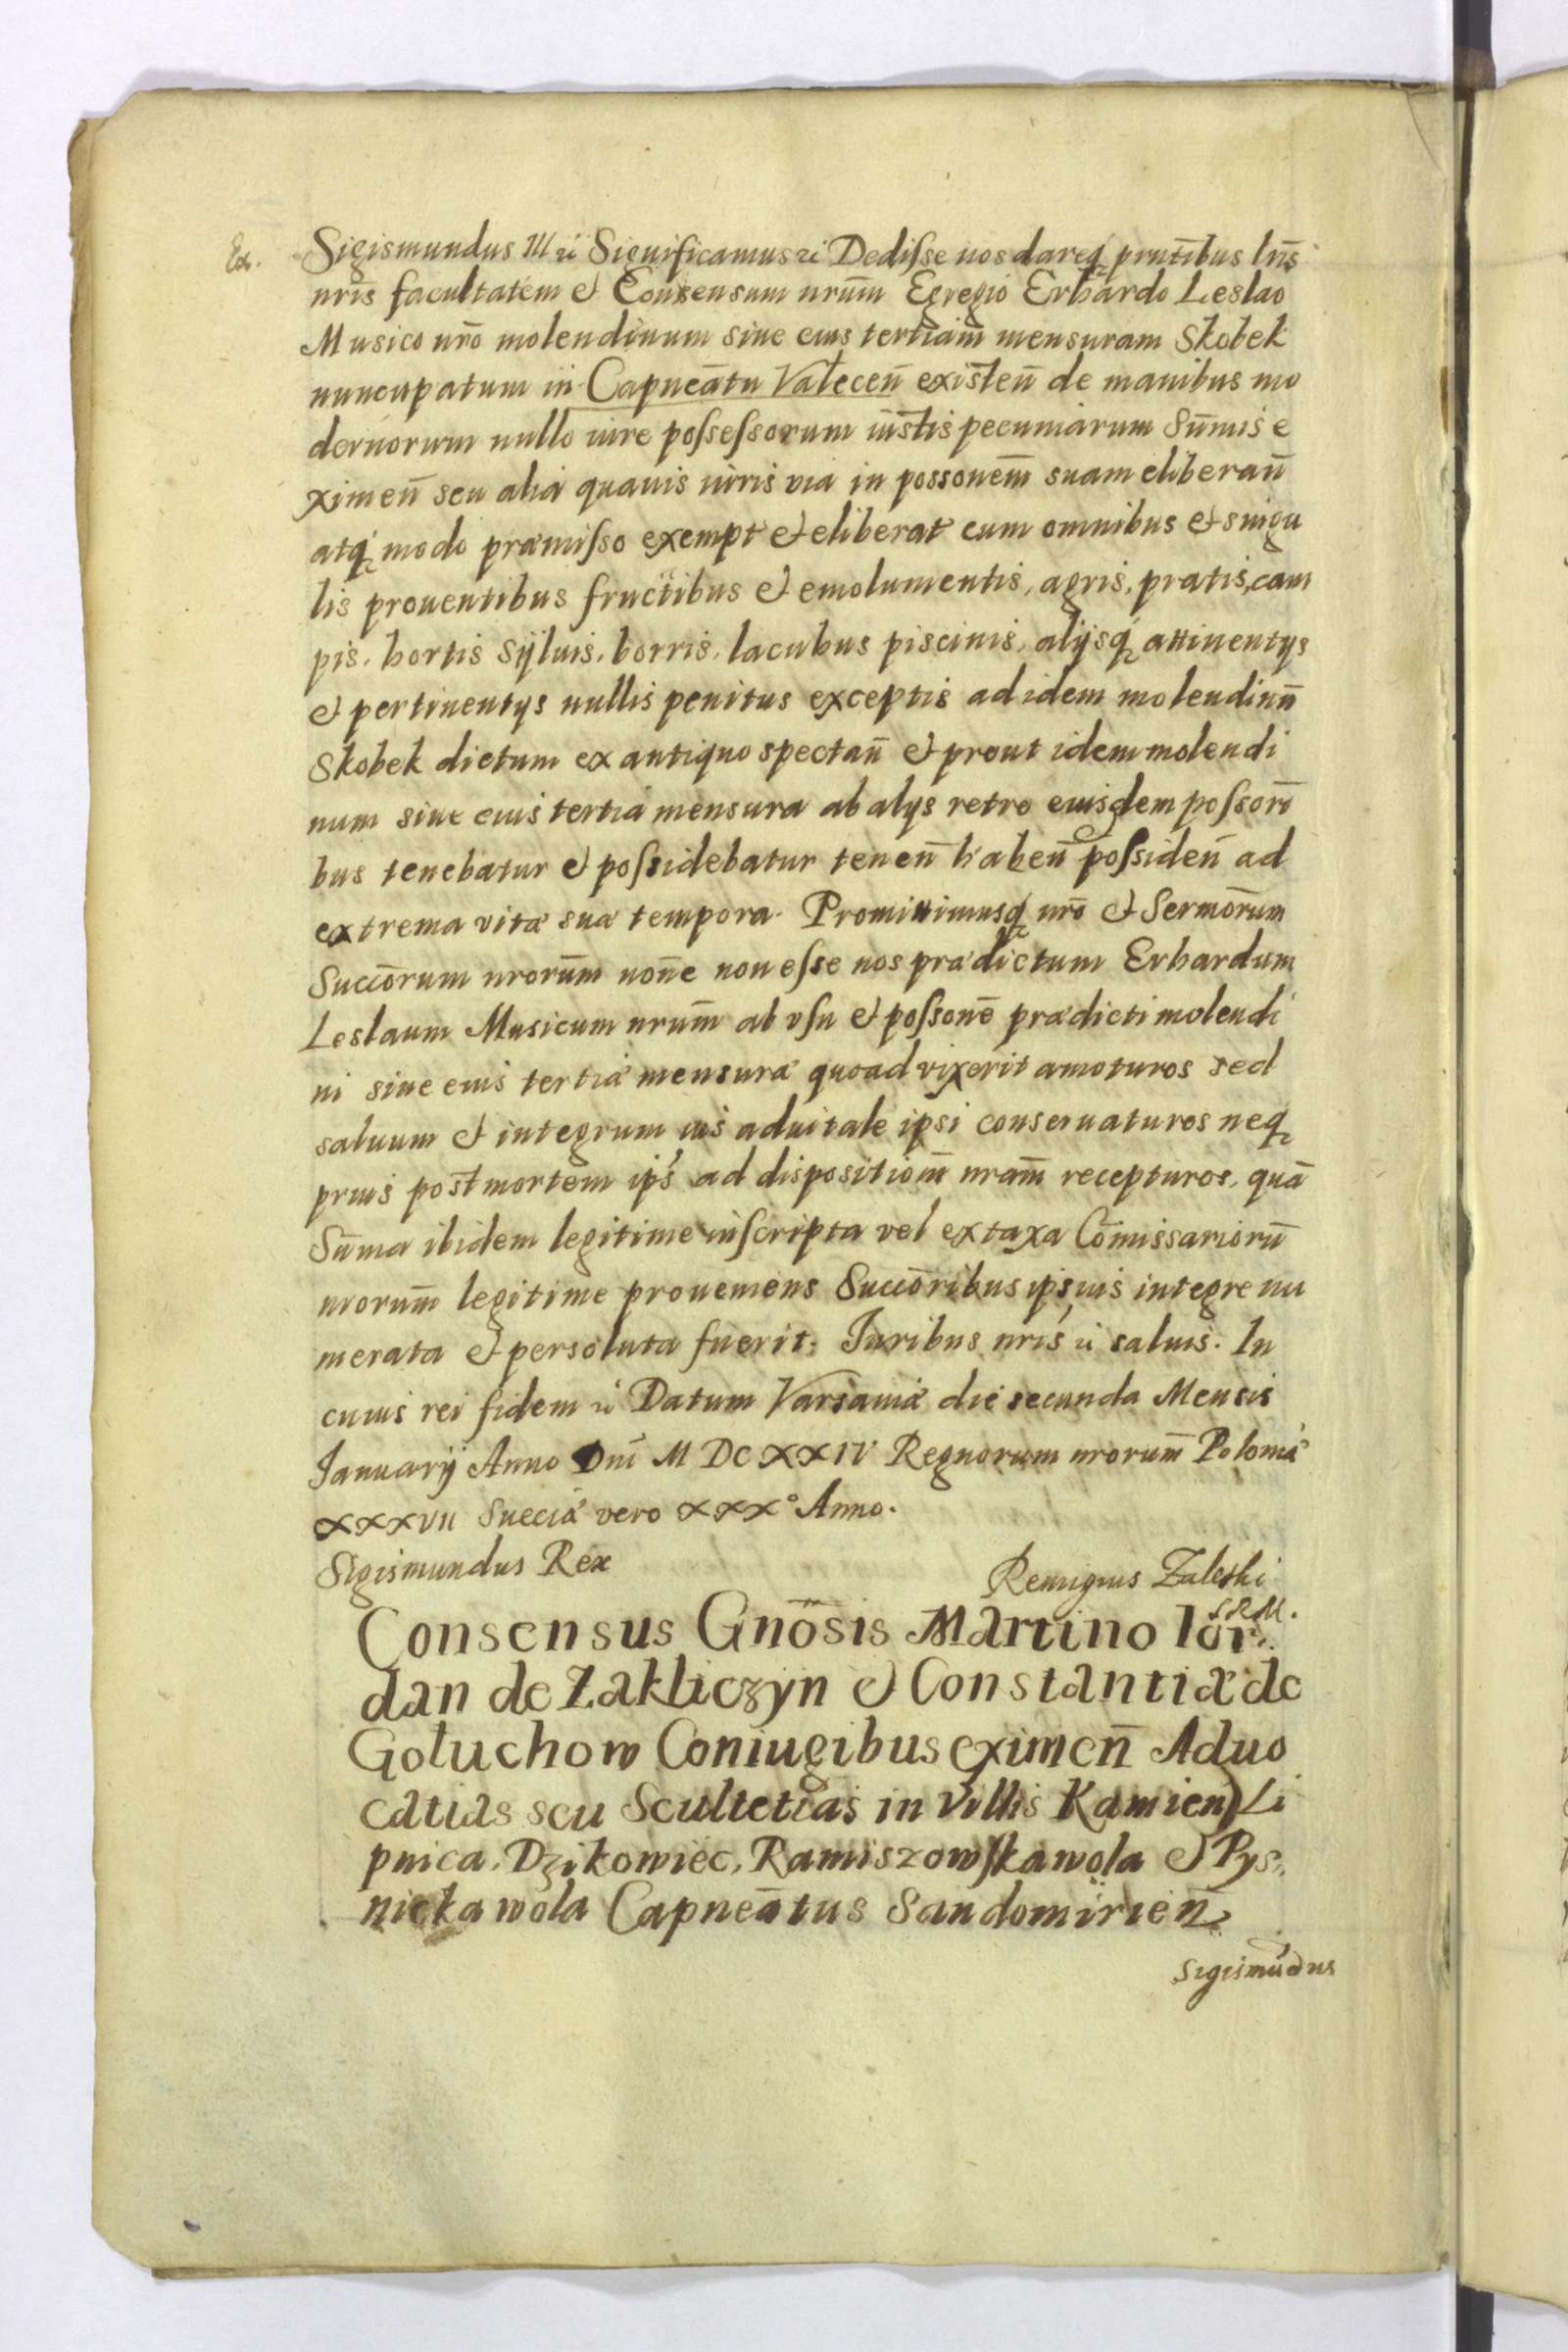 Ex. Sigismundus III zc Significamus zc Dedisse nos dareq̃ pñtibus lr̃is
nris facultatem et Consensum nrum̃ Egregio Erhardo Leslao
Musico nrõ molendinum siue eius tertiam̃ mensuram Skobek
nuncupatum in Capneãtu Vatecen̄ existen̄ de manibus mo
dernorum nullo iure possessorum iustis pecuniarum Sum̄is e
ximen̄ seu alia quauis iuris via in possonem̃ suam eliberan̄
atq́ modo præmisso exempt et eliberat cum omnibus et singu
lis prouentibus fructibus et emolumentis, agris, pratis, cam
pis, hortis sÿluis, borris, lacubus piscinis, alÿsq́ attinentys
et pertinentys nullis penitus exceptis ad idem molendinū
Skobek dictum ex antiquo spectan̄ et prout idem molendi
num siue eius tertia mensura ab alys retro eiusdem possori
bus tenebatur et possidebatur tenen̄ haben̄ possiden̄ ad
extrema vitæ suæ tempora. Promittimusq́ nrõ et Sermõrum
Succõrum nrorum̃ noñe non esse nos prædictum Erhardum
Leslaum Musicum nrum̃ ab vsu et possonẽ prædicti molendi
ni siue eius tertia mensura quoad vixerit amoturos sed
saluum et integrum ius aduitale ipsi conseruaturos neq́
prius post mortem ips̃ ad dispositiom̃ nram̃ recepturos, quā
Sum̄a ibidem legitime inscripta vel ex taxa Com̄issariorū
nrorum̃ legitime proueniens Succõribus ipsius integre nu
merata et persoluta fuerit. Juribus nris zc saluis. In
cuius rei fidem zc Datum Varsauiæ die secunda Mensis
Januarÿ Anno Dnĩ M DC XXIV Regnorum nrorum̃ Poloniæ
XXXVII Sueciæ vero XXX° Anno.
Sigismundus Rex
Remigius Zaleski
S R M.
Consensus Gnõsis Martino Ior
dan de Zakliczyn et Constantiæ de
Gołuchow Coniugibus eximen̄ Aduo
catias seu Scultetias in Villis Kamien, Li
pnica, Dzikowiec, Ramiszowska wola et Pys
nicka wola Capneãtus Sandomirien̄
Sigismũdus